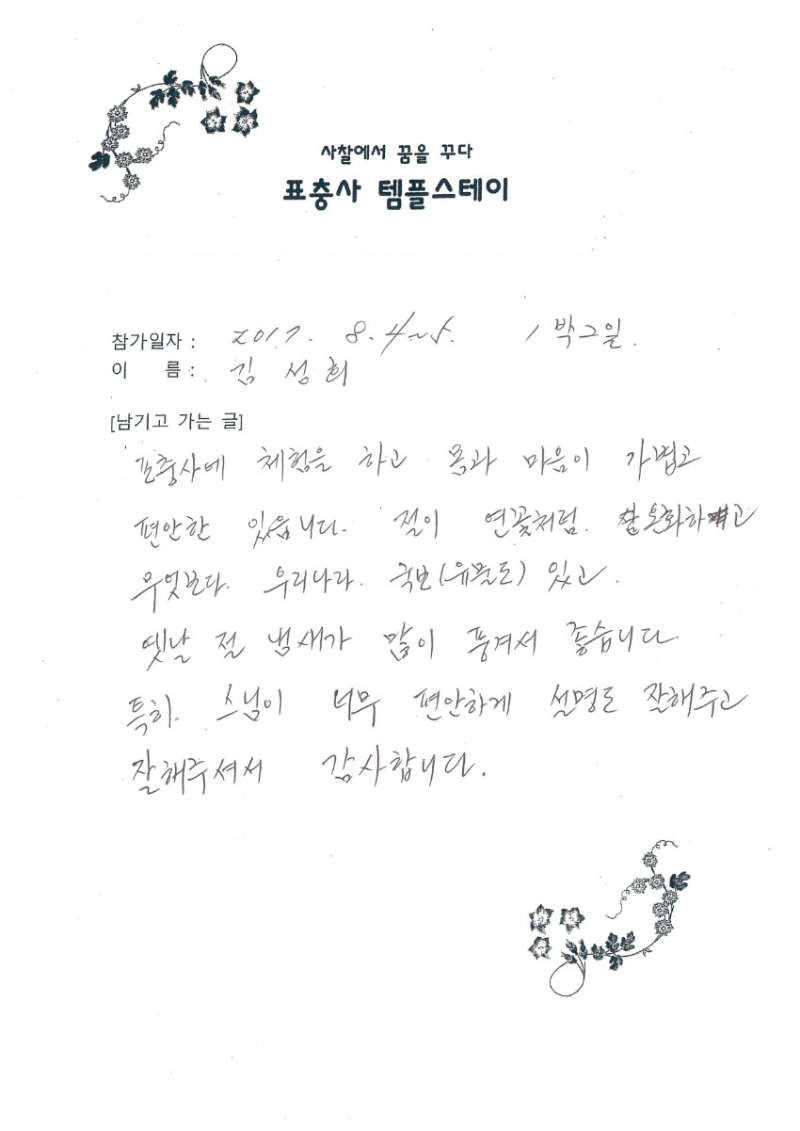 사찰에서 꿈을 꾸다
표충사 템플스테이
참가일자 : 2017. 8. 4~5. / 박2일.
이 름 : 김 성 희
[남기고 가는 글]
표충사에 체험을 하고 몸과 마음이 가볍고
편안한 있읍니다. 절이 연꽃처럼. 참 온화하고
무엇보다. 우리나라. 국보(유물도) 있고.
옛날 절 냄새가 많이 풍겨서 좋습니다
특히. 스님이 너무 편안하게 설명도 잘해주고
잘해주셔서 감사합니다.